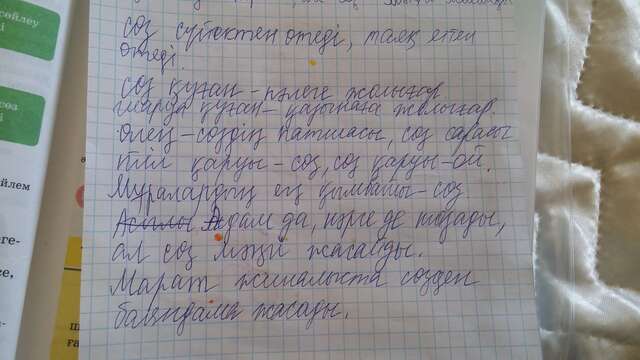 сөйлеу
сөз
йлем
сөз сүйектен өтеді, таяқ еттен
өтеді.
сөз қуған - пәлеге жолығар
шаруа қуған - қазынаға жолығар.
өлең - сөздің патшасы, сөз сарасы
тіл қаруы - сөз, сөз қаруы - ой.
Мұралардың ең қымбаты - сөз.
Асылы Адам да, нәрсе де тозады,
ал сөз мәңгі жасайды.
Марат жиналыста сөзден
баяндама жасады.